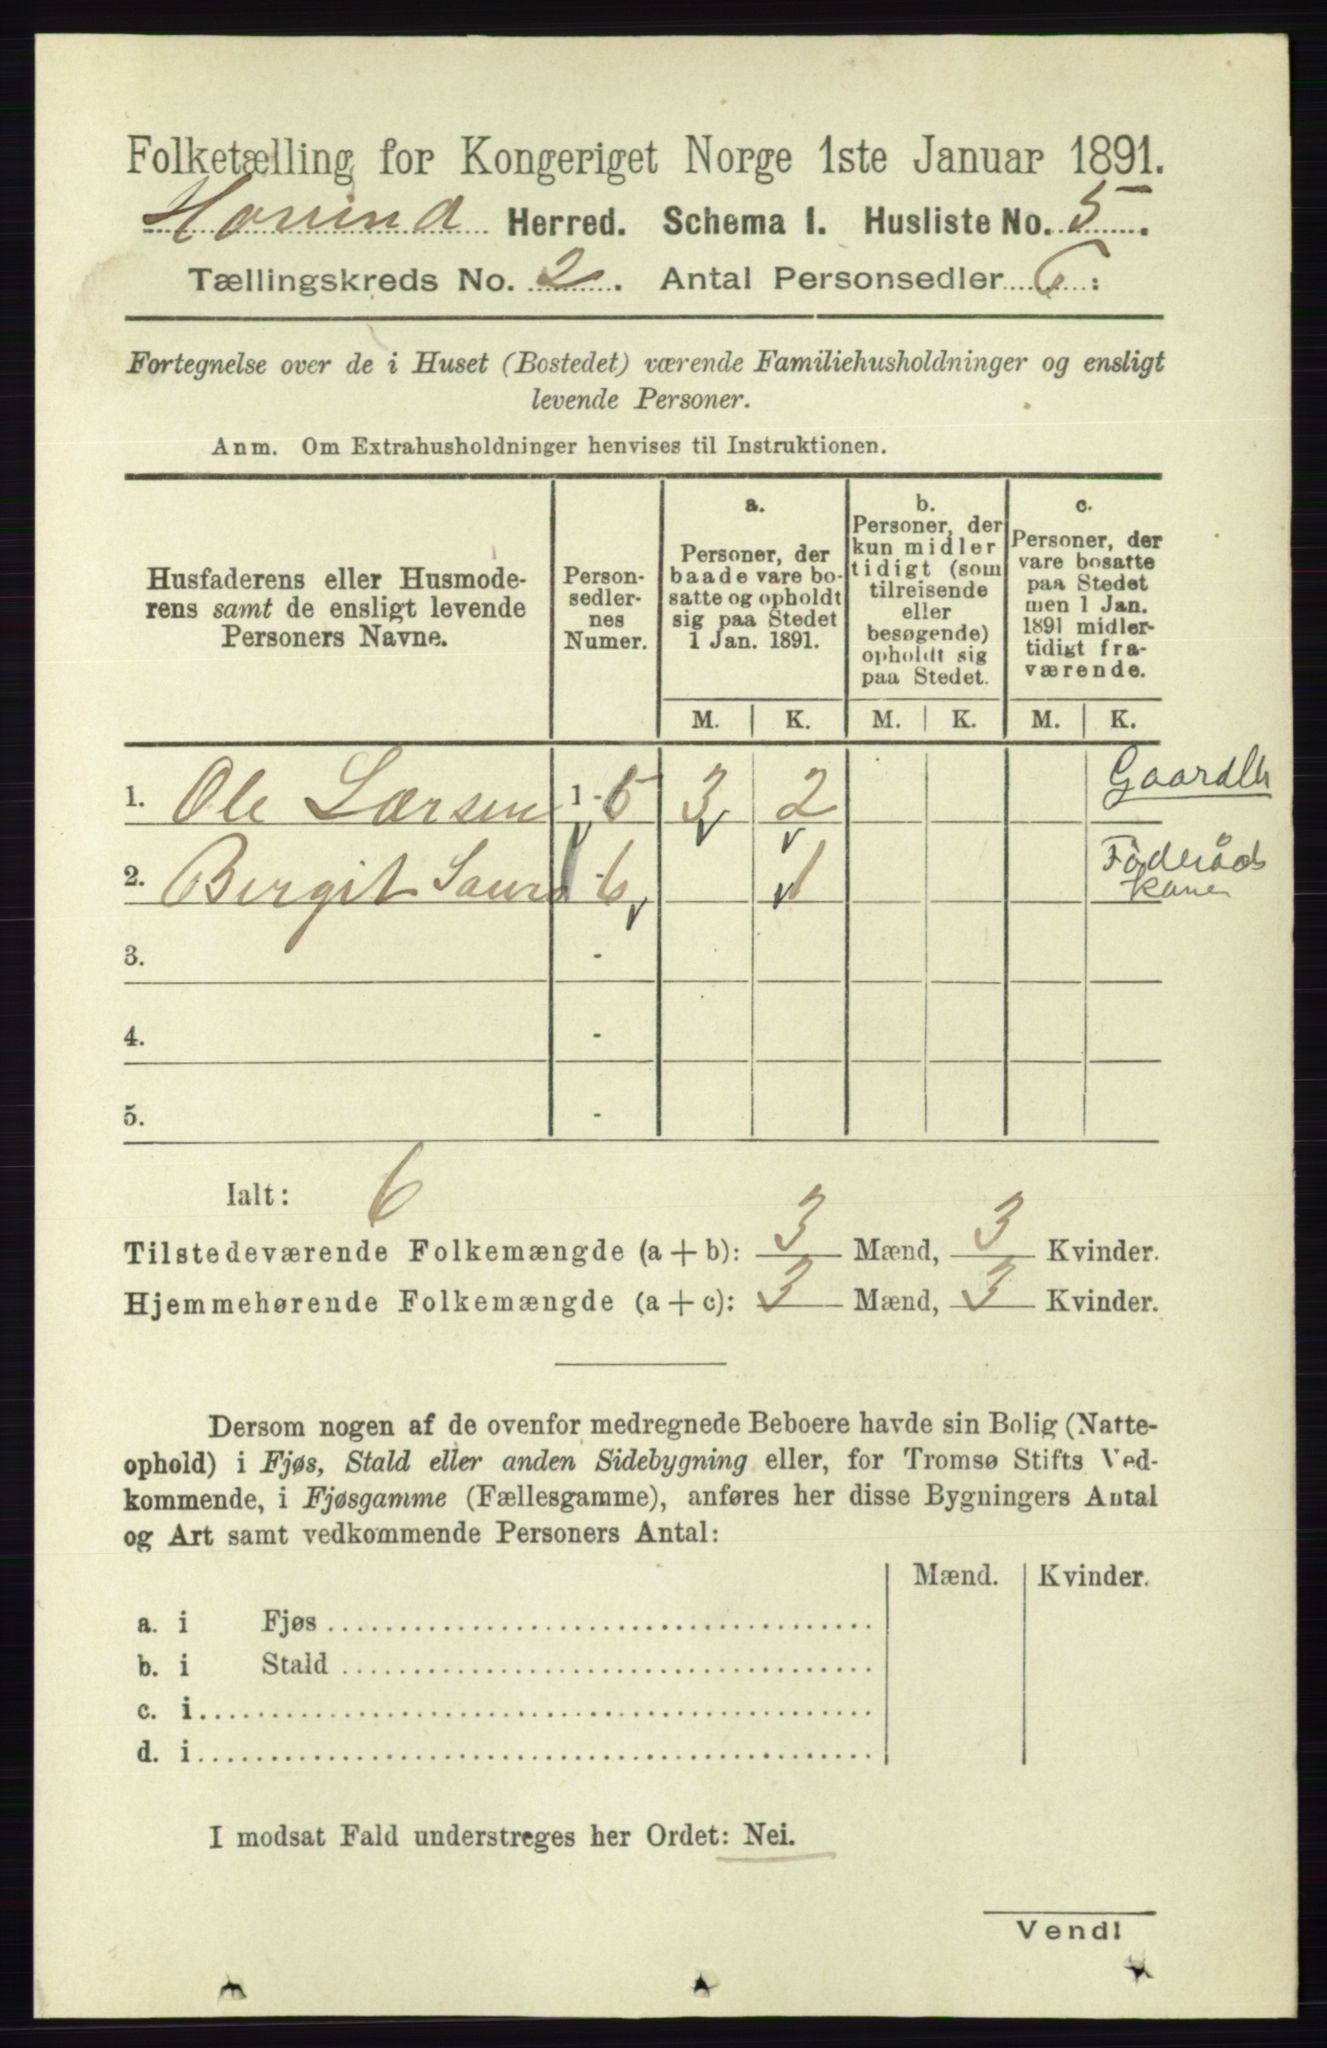 Folketælling for Kongeriget Norge 1ste Januar 1891.
Hovind Herred. Schema I. Husliste No. 5.
Tællingskreds No. 2. Antal Personsedler 6:
Fortegnelse over de i Huset (Bostedet) værende Familiehusholdninger og ensligt
levende Personer.
Anm. Om Extrahusholdninger henvises til Instruktionen.
Husfaderens eller Husmode-
rens samt de ensligt levende
Personers Navne.
Person-
sedler-
nes
Numer.
a.
Personer, der
baade vare bo-
satte og opholdt
sig paa Stedet
1 Jan. 1891.
b.
Personer, der
kun midler
tidigt (som
tilreisende
eller
besøgende)
opholdt sig
paa Stedet.
c.
Personer, der
vare bosatte
paa Stedet
men 1 Jan.
1891 midler-
tidigt fra-
værende.
M. K. M. K. M. K.
1. Ole Larsen 1-5 3 2
2. Birgit 6 1 Föderåds
kone
3. -
4. -
5. -
Ialt: 6
Tilstedeværende Folkemængde (a + b): 3 Mænd, 3 Kvinder.
Hjemmehørende Folkemængde (a + c): 3 Mænd, 3 Kvinder.
Dersom nogen af de ovenfor medregnede Beboere havde sin Bolig (Natte-
ophold) i Fjøs, Stald eller anden Sidebygning eller, for Tromsø Stifts Ved-
kommende, i Fjøsgamme (Fællesgamme), anføres her disse Bygningers Antal
og Art samt vedkommende Personers Antal:
Mænd. Kvinder.
a. i Fjøs
b. i Stald
c. i
d. i
I modsat Fald understreges her Ordet: Nei.
Vend!